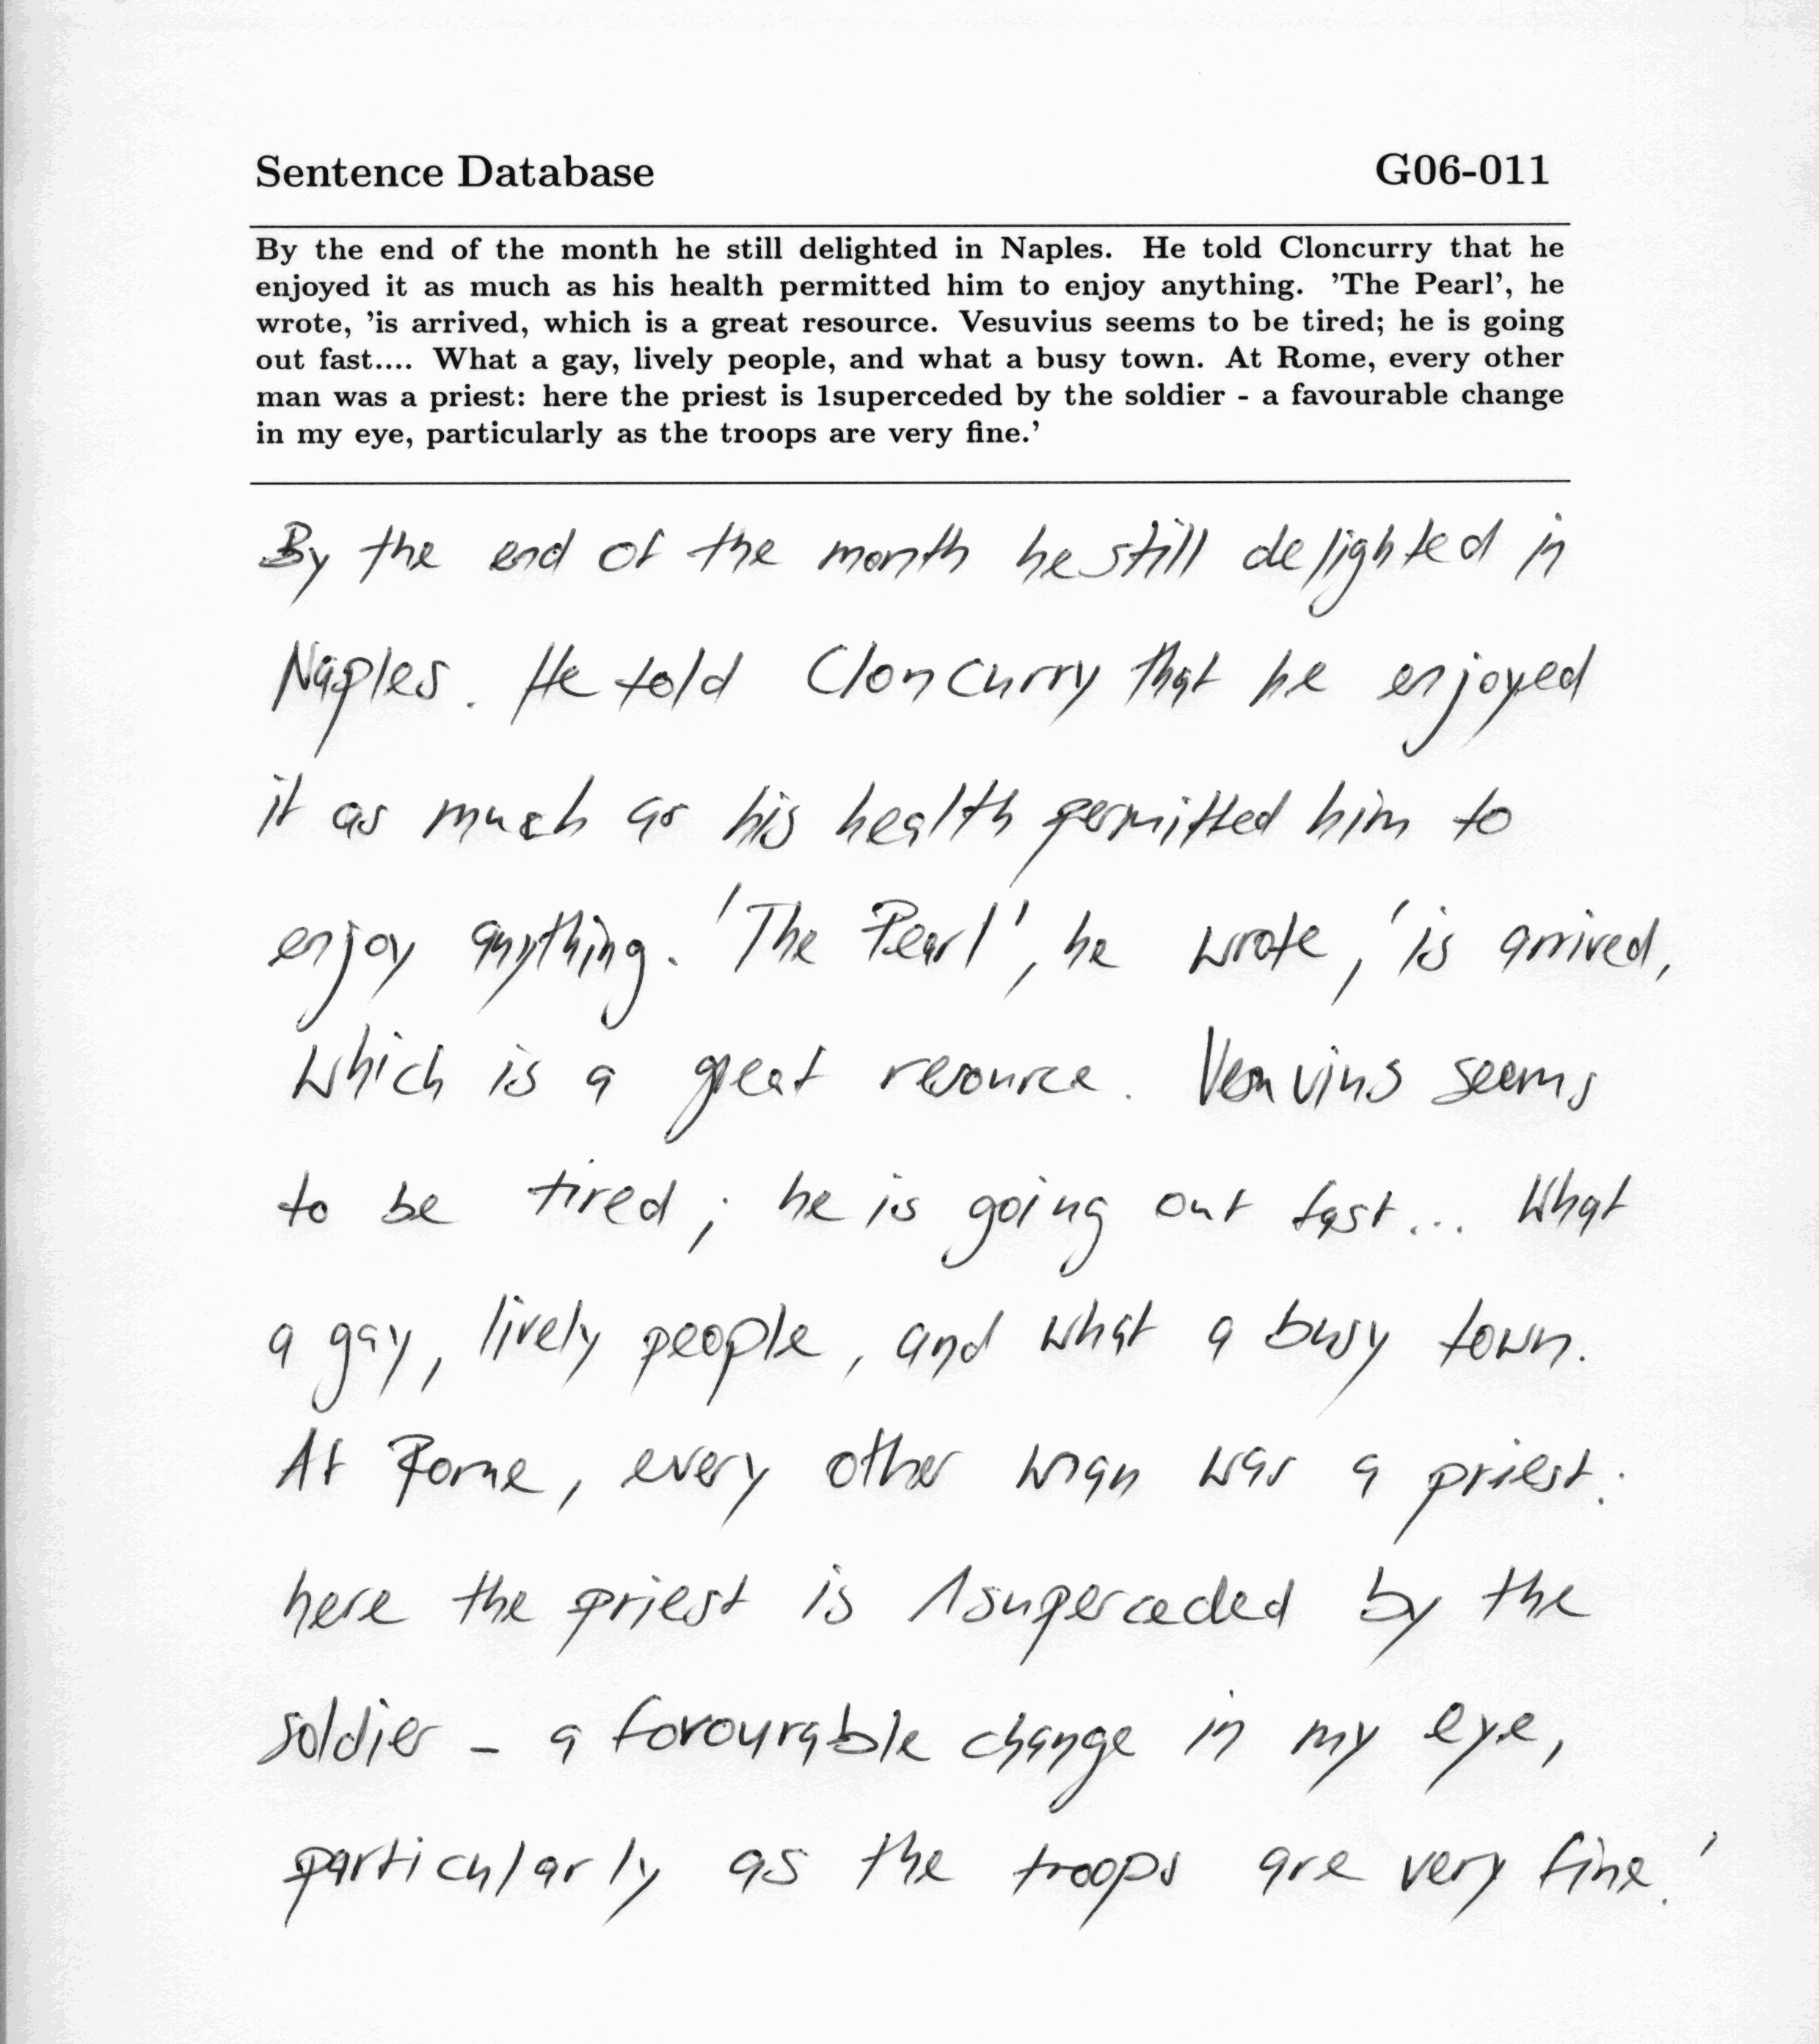 Sentence Database G06-011
By the end of the month he still delighted in Naples. He told Cloncurry that he
enjoyed it as much as his health permitted him to enjoy anything. 'The Pearl', he
wrote, 'is arrived, which is a great resource. Vesuvius seems to be tired; he is going
out fast.... What a gay, lively people, and what a busy town. At Rome, every other
man was a priest: here the priest is 1superceded by the soldier - a favourable change
in my eye, particularly as the troops are very fine.'
By the end of the month he still delighted in
Naples. He told Cloncurry that he enjoyed
it as much as his health permitted him to
enjoy anything. 'The Pearl', he wrote, 'is arrived,
which is a great resource. Vesuvius seems
to be tired; he is going out fast... What
a gay, lively people, and what a busy town.
At Rome, every other man was a priest:
here the priest is 1superceded by the
soldier - a favourable change in my eye,
particularly as the troops are very fine.'